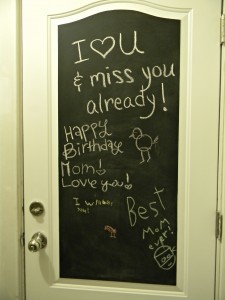 I ♡ U
& miss you
already!
Happy
Birthday
Mom!
Love you!
I
you!
Best
Mom
ever!